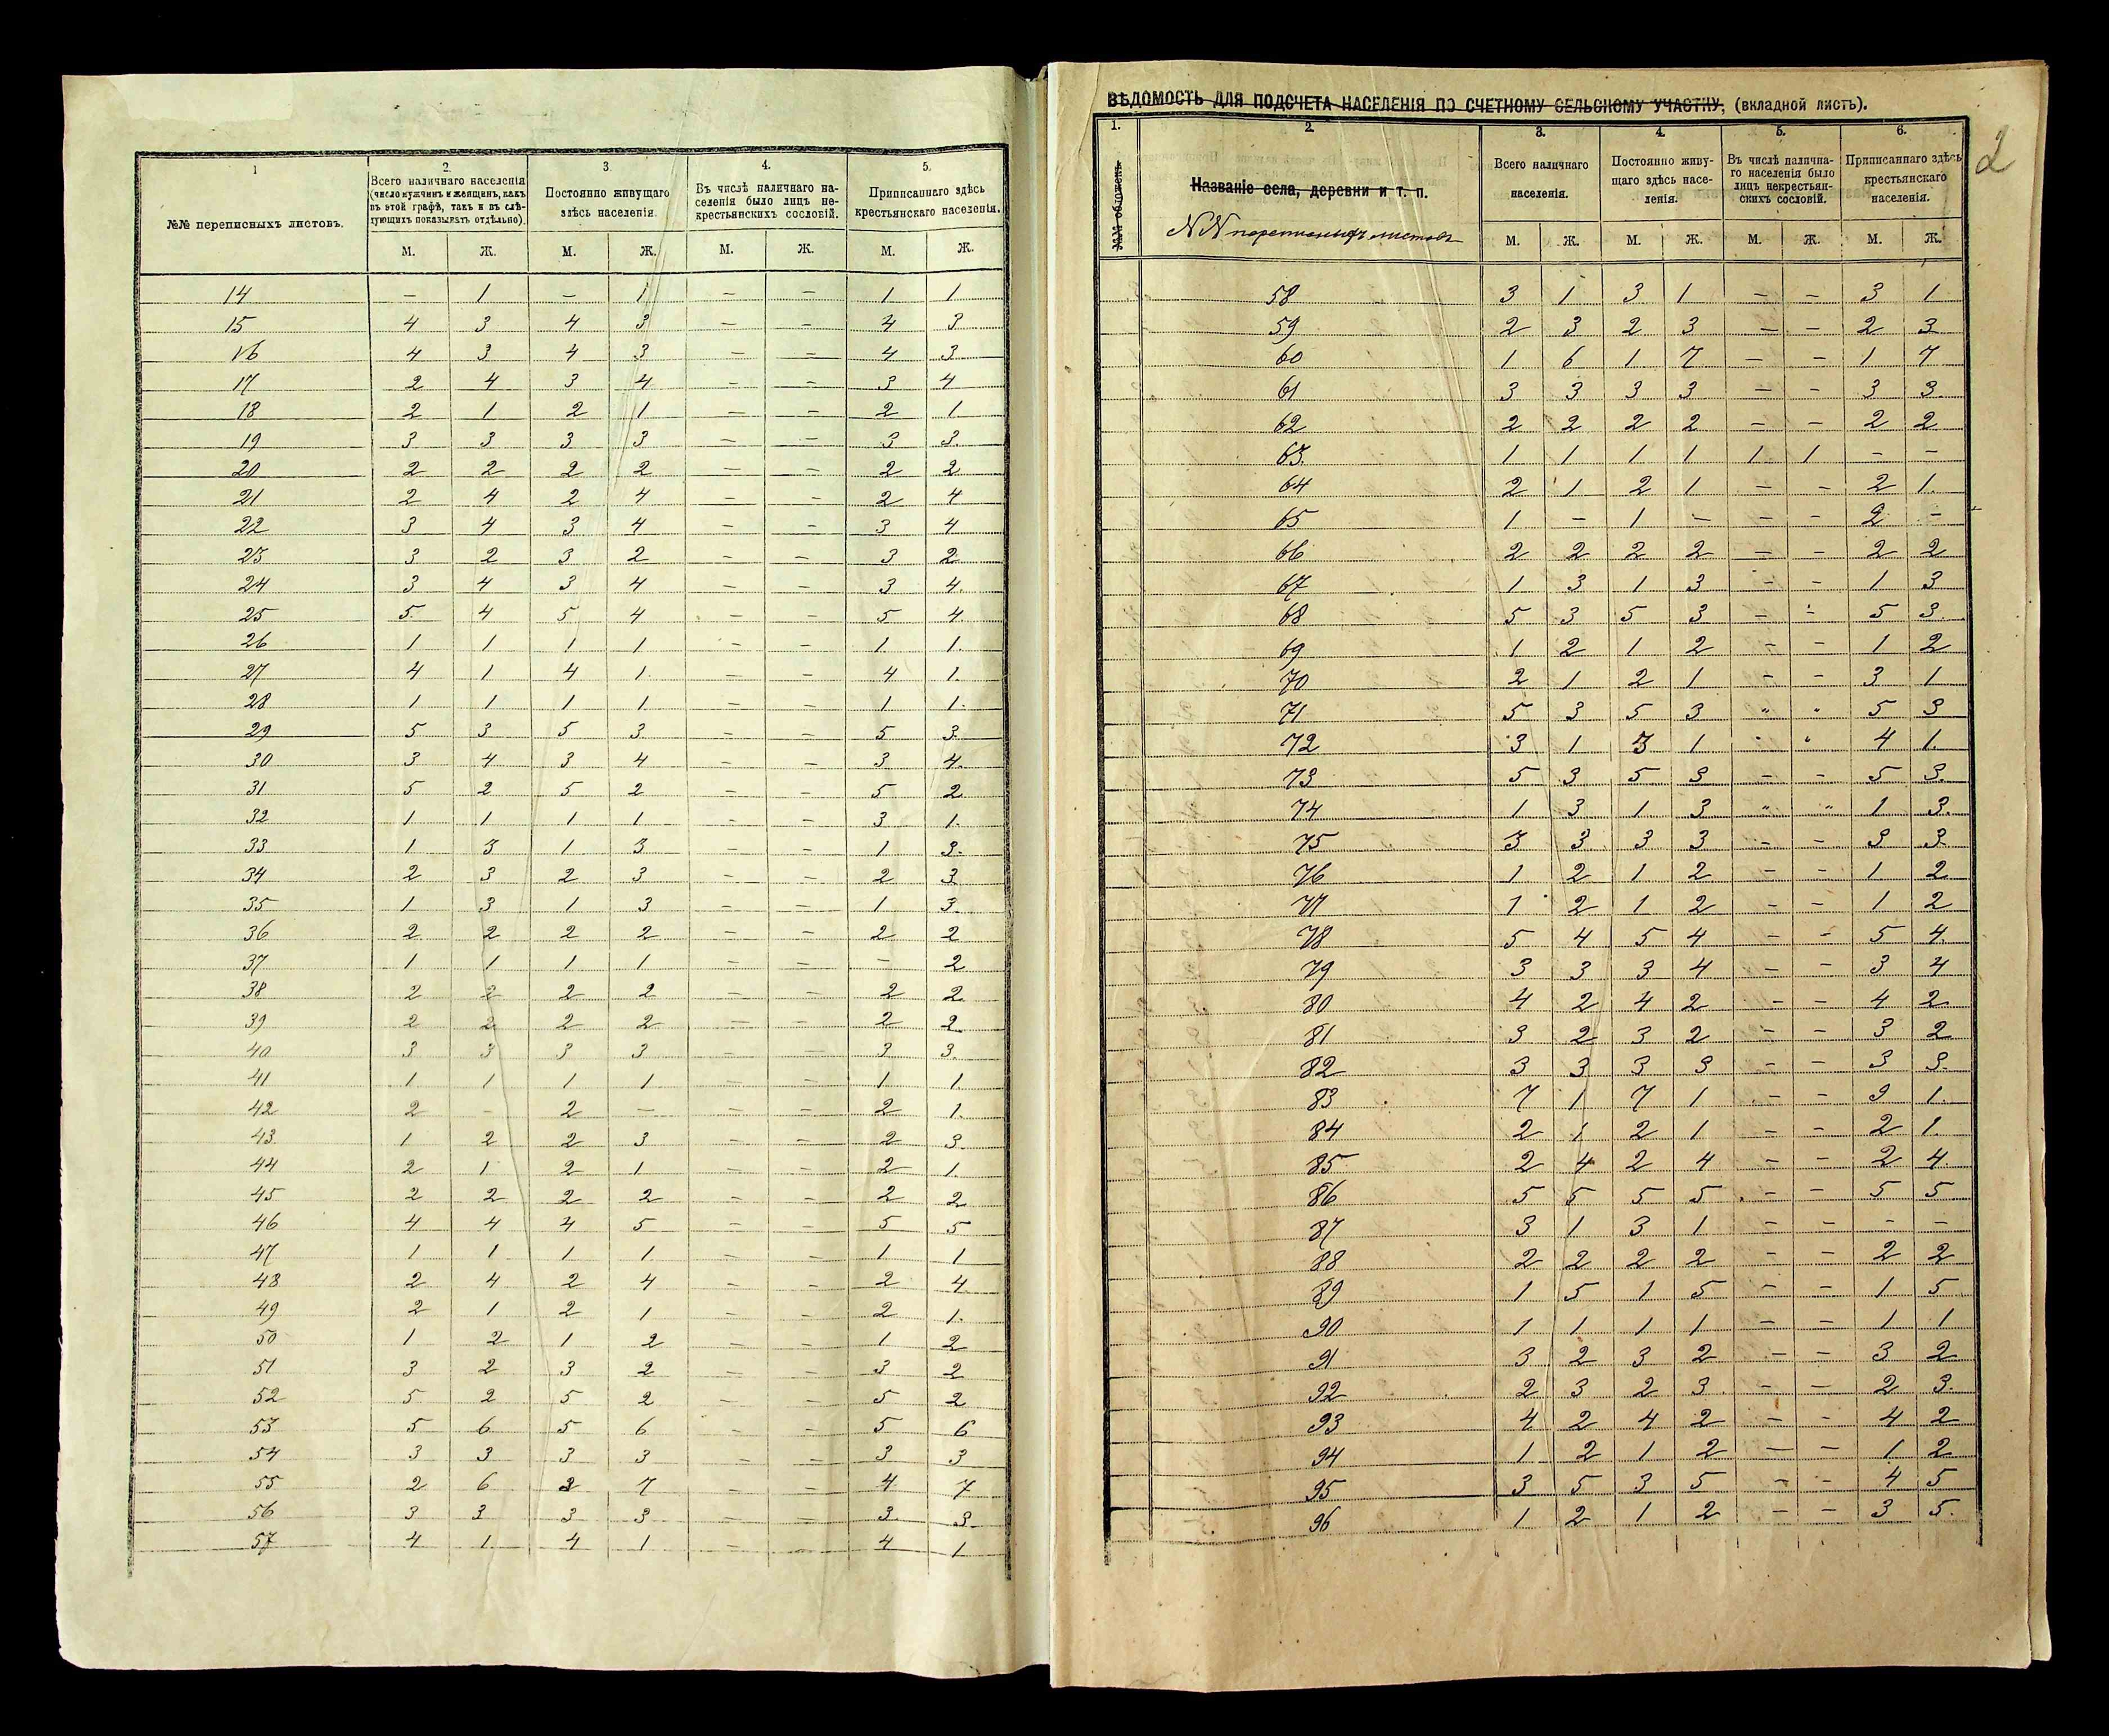 1 2. 3 4. 5.
№№ переписныхъ листовъ.
Всего наличнаго населенія
(число мужчинъ и женщинъ, какъ
въ этой графѣ, такъ и въ слѣ-
дующихъ показывать отдѣльно).
Постоянно живущаго
здѣсь населенія.
Въ числѣ наличнаго на-
селенія было лицъ не-
крестьянскихъ сословій.
Приписаннаго здѣсь
крестьянскаго населенія.
М. Ж. М. Ж. М. Ж. М. Ж.
14 — 1 — 1 — — 1 1
15 4 3 4 3 — — 4 3
16 4 3 4 3 — — 4 3
17 2 4 3 4 — — 3 4
18 2 1 2 1 — — 2 1
19 3 3 3 3 — — 3 3
20 2 2 2 2 — — 2 2
21 2 4 2 4 — — 2 4
22 3 4 3 4 — — 3 4
23 3 2 3 2 — — 3 2
24 3 4 3 4 — — 3 4
25 5 4 5 4 — — 5 4
26 1 1 1 1 — — 1 1
27 4 1 4 1 — — 4 1
28 1 1 1 1 — — 1 1
29 5 3 5 3 — — 5 3
30 3 4 3 4 — — 3 4
31 5 2 5 2 — — 5 2
32 1 1 1 1 — — 3 1
33 1 3 1 3 — — 1 3
34 2 3 2 3 — — 2 3
35 1 3 1 3 — — 1 3
36 2 2 2 2 — — 2 2
37 1 1 1 1 — — — 2
38 2 2 2 2 — — 2 2
39 2 2 2 2 — — 2 2
40 3 3 3 3 — — 3 3
41 1 1 1 1 — — 1 1
42 2 — 2 — — — 2 1
43 1 2 2 3 — — 2 3
44 2 1 2 1 — — 2 1
45 2 2 2 2 — — 2 2
46 4 4 4 5 — — 5 5
47 1 1 1 1 — — 1 1
48 2 4 2 4 — — 2 4
49 2 1 2 1 — — 2 1
50 1 2 1 2 — — 1 2
51 3 2 3 2 — — 3 2
52 5 2 5 2 — — 5 2
53 5 6 5 6 — — 5 6
54 3 3 3 3 — — 3 3
55 2 6 2 7 — — 4 7
56 3 3 3 3 — — 3 3
57 4 1 4 1 — — 4 1
ВѢДОМОСТЬ ДЛЯ ПОДСЧЕТА НАСЕЛЕНІЯ ПО СЧЕТНОМУ СЕЛЬСКОМУ УЧАСТКУ, (вкладной листъ).
2
1. 2. 3. 4. 5. 6.
Названіе села, деревни и т. п.
NN переписныхъ листовъ
Всего наличнаго
населенія.
Постоянно живу-
щаго здѣсь насе-
ленія.
Въ числѣ налична-
го населенія было
лицъ некрестьян-
скихъ сословій.
Приписаннаго здѣсь
крестьянскаго
населенія.
М. Ж. М. Ж. М. Ж. М. Ж.
58 3 1 3 1 — — 3 1
59 2 3 2 3 — — 2 3
60 1 6 1 7 — — 1 7
61 3 3 3 3 — — 3 3
62 2 2 2 2 — — 2 2
63 1 1 1 1 1 1 — —
64 2 1 2 1 — — 2 1
65 1 — 1 — — — 2 —
66 2 2 2 2 — — 2 2
67 1 3 1 3 — — 1 3
68 5 3 5 3 — — 5 3
69 1 2 1 2 — — 1 2
70 2 1 2 1 — — 3 1
71 5 3 5 3 " " 5 3
72 3 1 3 1 " " 4 1
73 5 3 5 3 — — 5 3
74 1 3 1 3 " " 1 3
75 3 3 3 3 — — 3 3
76 1 2 1 2 — — 1 2
77 1 2 1 2 — — 1 2
78 5 4 5 4 — — 5 4
79 3 3 3 4 — — 3 4
80 4 2 4 2 — — 4 2
81 3 2 3 2 — — 3 2
82 3 3 3 3 — — 3 3
83 7 1 7 1 — — 9 1
84 2 1 2 1 — — 2 1
85 2 4 2 4 — — 2 4
86 5 5 5 5 — — 5 5
87 3 1 3 1 — — — —
88 2 2 2 2 — — 2 2
89 1 5 1 5 — — 1 5
90 1 1 1 1 — — 1 1
91 3 2 3 2 — — 3 2
92 2 3 2 3 — — 2 3
93 4 2 4 2 — — 4 2
94 1 2 1 2 — — 1 2
95 3 5 3 5 — — 4 5
96 1 2 1 2 — — 3 5